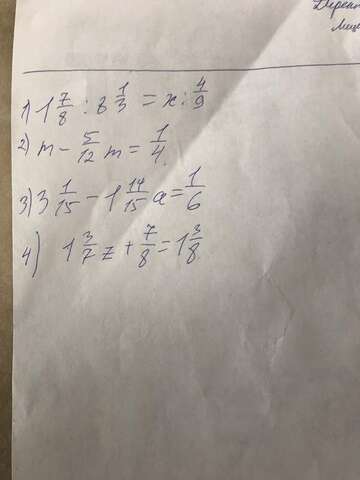 1) 1 7/8 : 8 1/3 = x : 4/9
2) m - 5/12 m = 1/4
3) 3 1/15 - 1 14/15 a = 1/6
4) 1 3/7 z + 7/8 = 1 3/8